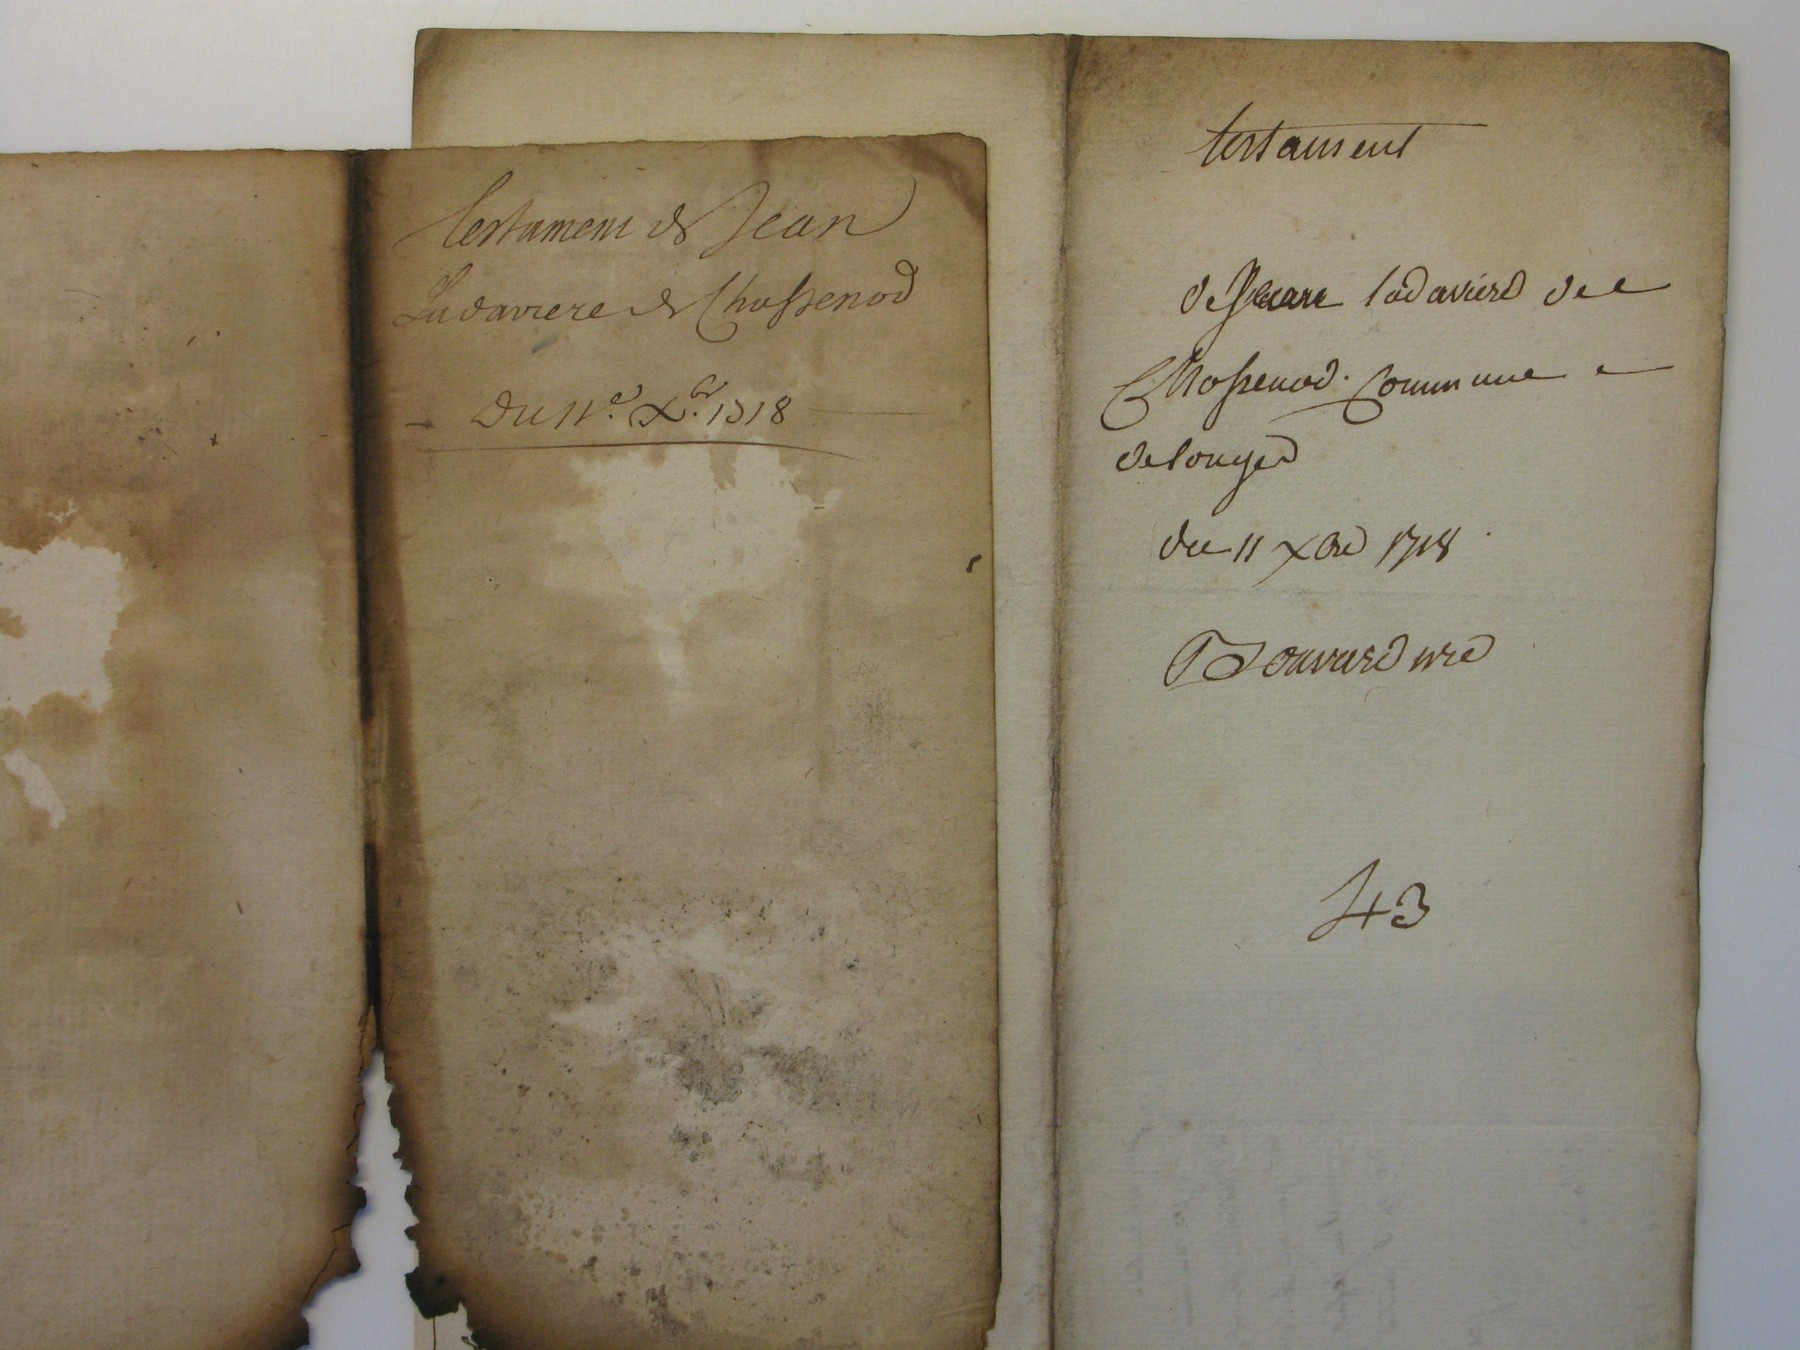 testament de Jean
Ladaviere de Chossenod
Du 11.e Xbr. 1718
testament
de Jean ladaviere de
Chossenod. Commune
de longes
du 11 Xbre 1718
Bouvard nre
43